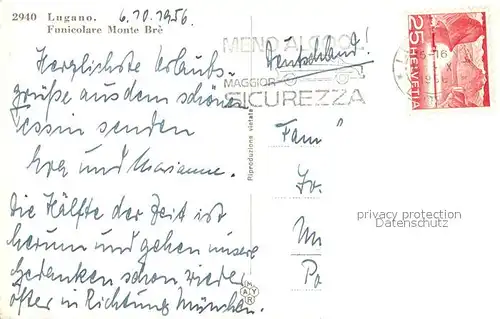 2940 Lugano. 6.10.1956.
Funicolare Monte Brè
Herzlichste Urlaubs-
grüße aus dem schönen
Tessin senden
und Marianne.
Die Hälfte der Zeit ist
herum und gehen unsere
Gedanken schon wieder
öfter in Richtung München.
Riproduzione vietata
MAYR
MENO ALCOOL
MAGGIOR
SICUREZZA
Deutschland!
25 HELVETIA
Fam
Jo.
Po
privacy protection
Datenschutz